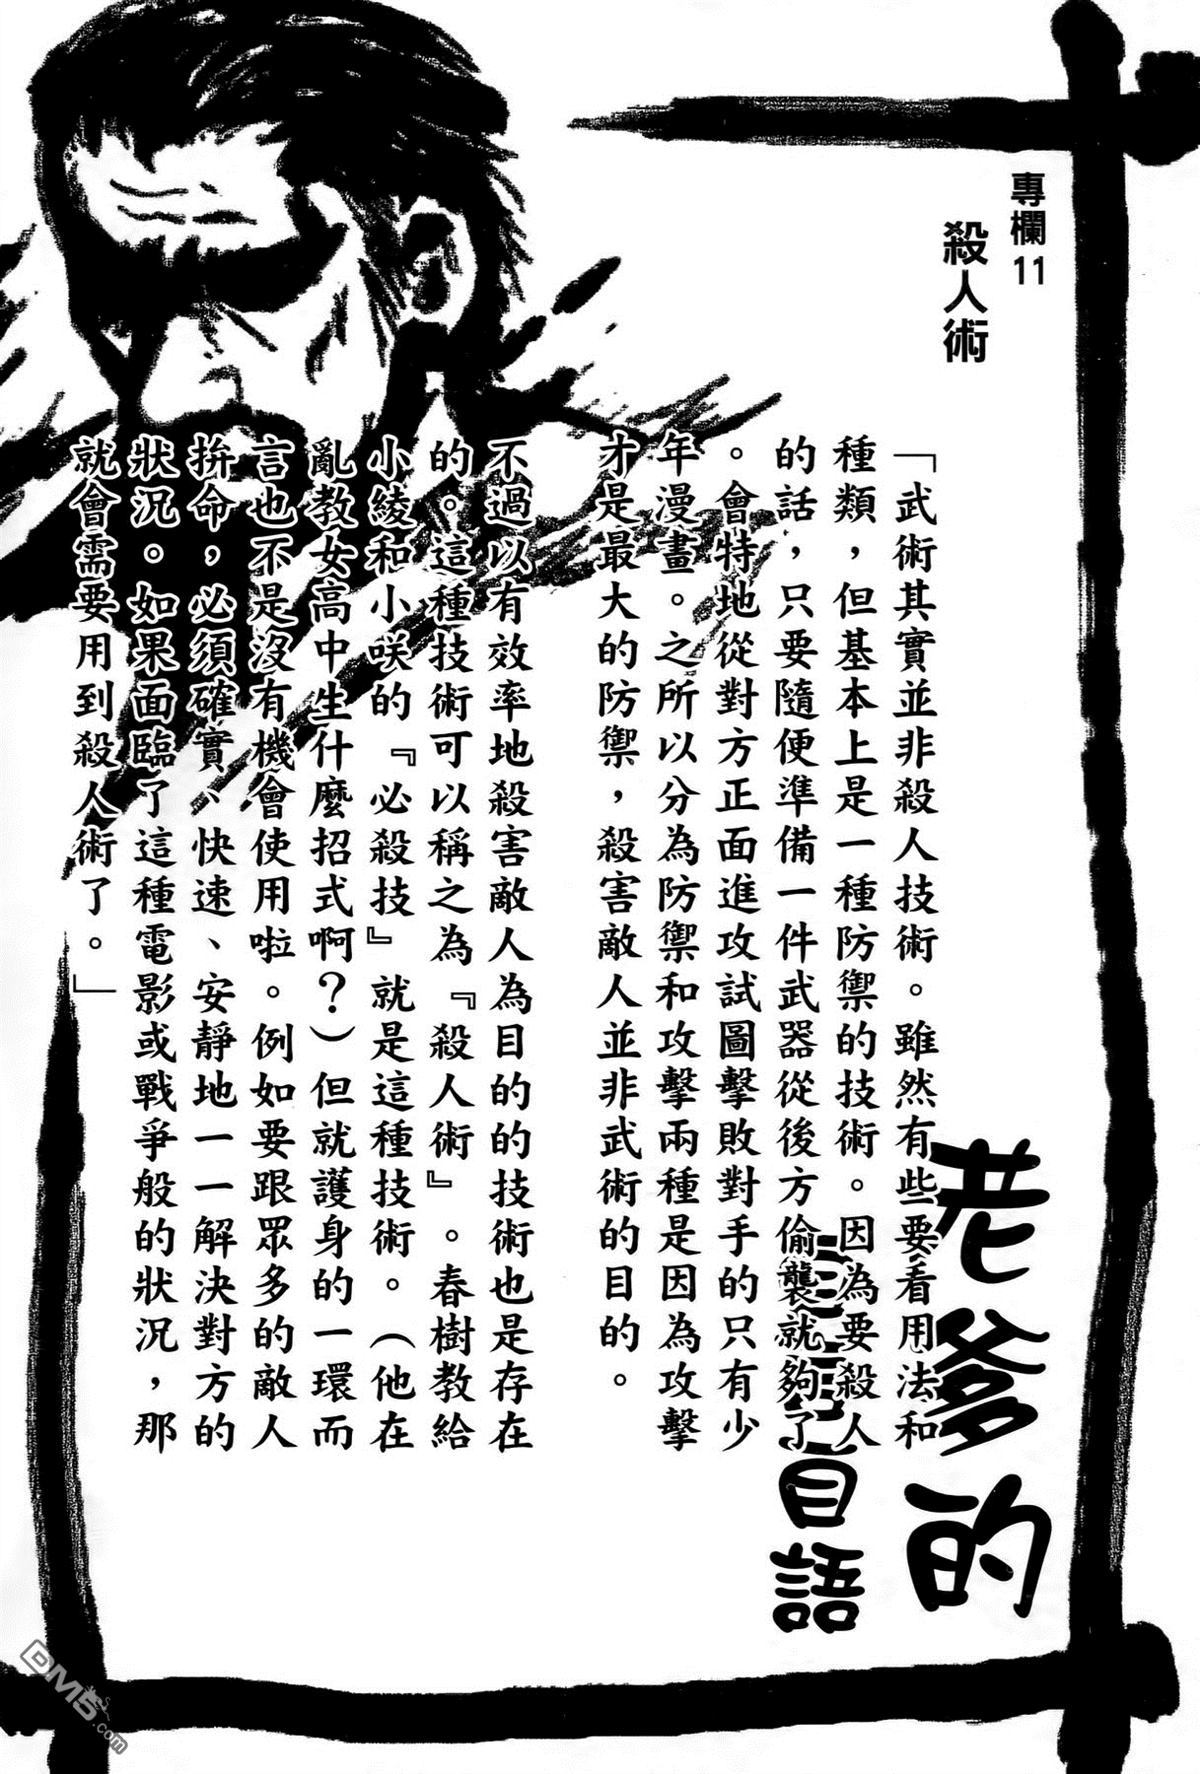 專欄11
殺人術
「武術其實並非殺人技術。雖然有些要看用法和
種類，但基本上是一種防禦的技術。因為要殺人
的話，只要隨便準備一件武器從後方偷襲就夠了
。會特地從對方正面進攻試圖擊敗對手的只有少
年漫畫。之所以分為防禦和攻擊兩種是因為攻擊
才是最大的防禦，殺害敵人並非武術的目的。
不過以有效率地殺害敵人為目的的技術也是存在
的。這種技術可以稱之為『殺人術』。春樹教給
小綾和小咲的『必殺技』就是這種技術。（他在
亂教女高中生什麼招式啊？）但就護身的一環而
言也不是沒有機會使用啦。例如要跟眾多的敵人
拚命，必須確實、快速、安靜地一一解決對方的
狀況。如果面臨了這種電影或戰爭般的狀況，那
就會需要用到殺人術了。」
老爹的
自語
DM5.com